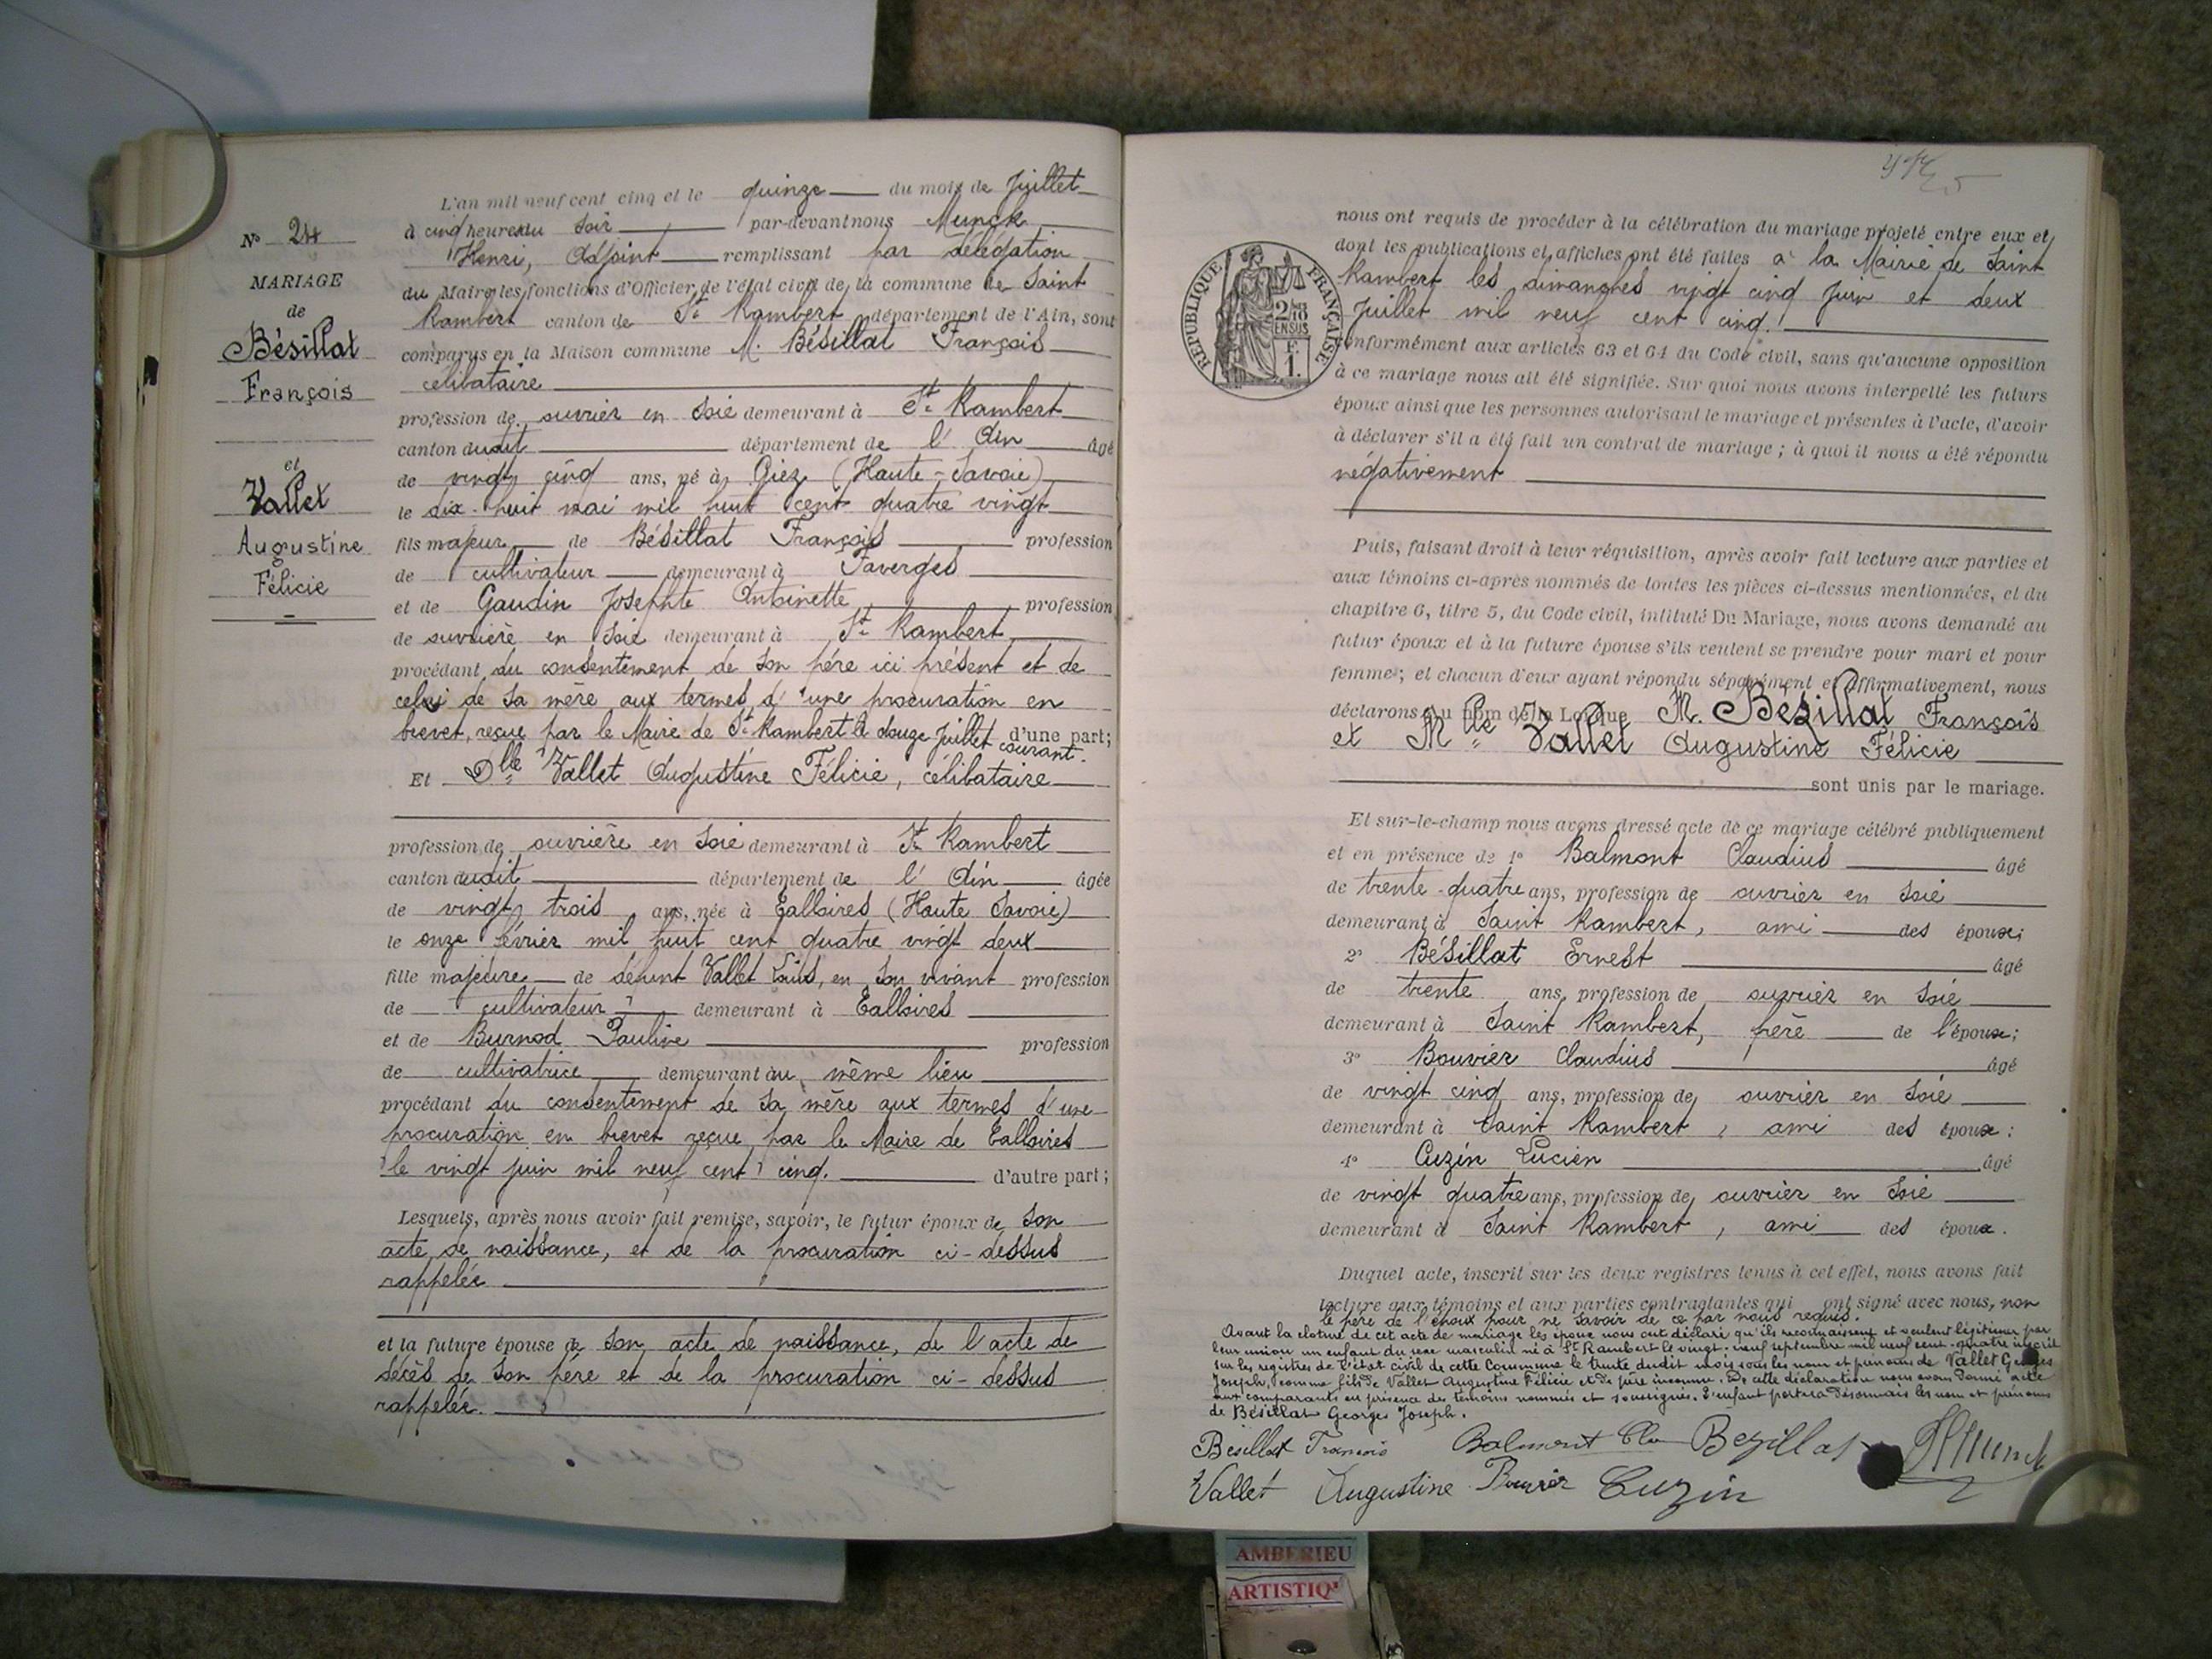 L'an mil neuf cent cinq et le quinze du mois de Juillet
à cinq heures du soir par-devant nous Munck
Henri, Adjoint remplissant par délégation
du Maire les fonctions d'Officier de l'état civil de la commune de Saint
Rambert canton de St Rambert département de l'Ain, sont
comparus en la Maison commune M. Bésillat François
célibataire
profession de ouvrier en soie demeurant à St Rambert
canton dudit département de l'Ain âgé
de vingt cinq ans, né à Giez (Haute-Savoie)
le dix-huit mai mil huit cent quatre vingt
fils majeur de Bésillat François profession
de cultivateur demeurant à Faverges
et de Gaudin Josephte Antoinette profession
de ouvrière en soie demeurant à St Rambert
procédant du consentement de son père ici présent et de
celui de sa mère aux termes d'une procuration en
brevet, reçue par le Maire de St Rambert le douze Juillet courant. d'une part;
Et Dlle Vallet Augustine Félicie, célibataire
profession de ouvrière en soie demeurant à St Rambert
canton dudit département de l'Ain âgée
de vingt trois ans, née à Talloires (Haute Savoie)
le onze février mil huit cent quatre vingt deux
fille majeure de défunt Vallet Louis, en son vivant profession
de cultivateur demeurant à Talloires
et de Burnod Pauline profession
de cultivatrice demeurant au même lieu
procédant du consentement de sa mère aux termes d'une
procuration en brevet reçue par le Maire de Talloires
le vingt juin mil neuf cent cinq. d'autre part;
Lesquels, après nous avoir fait remise, savoir, le futur époux de son
acte de naissance, et de la procuration ci-dessus
rappelée
et la future épouse de son acte de naissance, de l'acte de
décès de son père et de la procuration ci-dessus
rappelée.
No 24
MARIAGE
de
Bésillat
François
et
Vallet
Augustine
Félicie
RÉPUBLIQUE FRANÇAISE
2/10 EN SUS
F.
1.
nous ont requis de procéder à la célébration du mariage projeté entre eux et
dont les publications et affiches ont été faites à la Mairie de Saint
Rambert les dimanches vingt cinq Juin et deux
Juillet mil neuf cent cinq.
conformément aux articles 63 et 64 du Code civil, sans qu'aucune opposition
à ce mariage nous ait été signifiée. Sur quoi nous avons interpellé les futurs
époux ainsi que les personnes autorisant le mariage et présentes à l'acte, d'avoir
à déclarer s'il a été fait un contrat de mariage; à quoi il nous a été répondu
négativement
Puis, faisant droit à leur réquisition, après avoir fait lecture aux parties et
aux témoins ci-après nommés de toutes les pièces ci-dessus mentionnées, et du
chapitre 6, titre 5, du Code civil, intitulé Du Mariage, nous avons demandé au
futur époux et à la future épouse s'ils veulent se prendre pour mari et pour
femme; et chacun d'eux ayant répondu séparément et affirmativement, nous
déclarons au nom de la Loi que M. Bésillat François
et Mlle Vallet Augustine Félicie
sont unis par le mariage.
Et sur-le-champ nous avons dressé acte de ce mariage célébré publiquement
et en présence de 1o Balmont Claudius âgé
de trente-quatre ans, profession de ouvrier en soie
demeurant à Saint Rambert, ami des époux;
2o Bésillat Ernest âgé
de trente ans, profession de ouvrier en soie
demeurant à Saint Rambert, frère de l'époux;
3o Bouvier Claudius âgé
de vingt cinq ans, profession de ouvrier en soie
demeurant à Saint Rambert, ami des époux;
4o Cuzin Lucien âgé
de vingt quatre ans, profession de ouvrier en soie
demeurant à Saint Rambert, ami des époux.
Duquel acte, inscrit sur les deux registres tenus à cet effet, nous avons fait
lecture aux témoins et aux parties contractantes qui ont signé avec nous, non
le père de l'époux pour ne savoir de ce par nous requis.
Avant la cloture de cet acte de mariage les époux nous ont déclaré qu'ils reconnaissent et veulent légitimer par
leur union un enfant du sexe masculin né à St Rambert le vingt-neuf septembre mil neuf cent-quatre inscrit
sur les registres de l'état civil de cette Commune le trente dudit mois sous les nom et prénoms de Vallet Georges
Joseph, comme fils de Vallet Augustine Félicie et de père inconnu. De cette déclaration nous avons donné acte
aux comparants en présence des témoins nommés et soussignés. L'enfant portera désormais les nom et prénoms
de Bésillat Georges Joseph.
Besillat François Balmont Cla Bezillat HMunck
Vallet Augustine Bouvier Cuzin
AMBERIEU
ARTISTIQ'